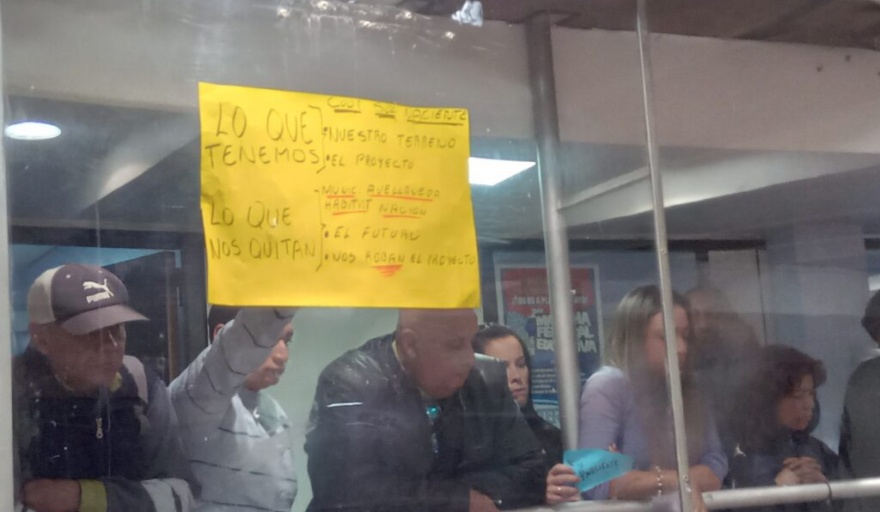 LO QUE
TENEMOS
COOP SOL NACIENTE
• NUESTRO TERRENO
• EL PROYECTO
LO QUE
NOS QUITAN
- MUNIC AVELLANEDA
HABITAT NACION
• EL FUTURO
• NOS ROBAN EL PROYECTO
PUMA
NACIENTE